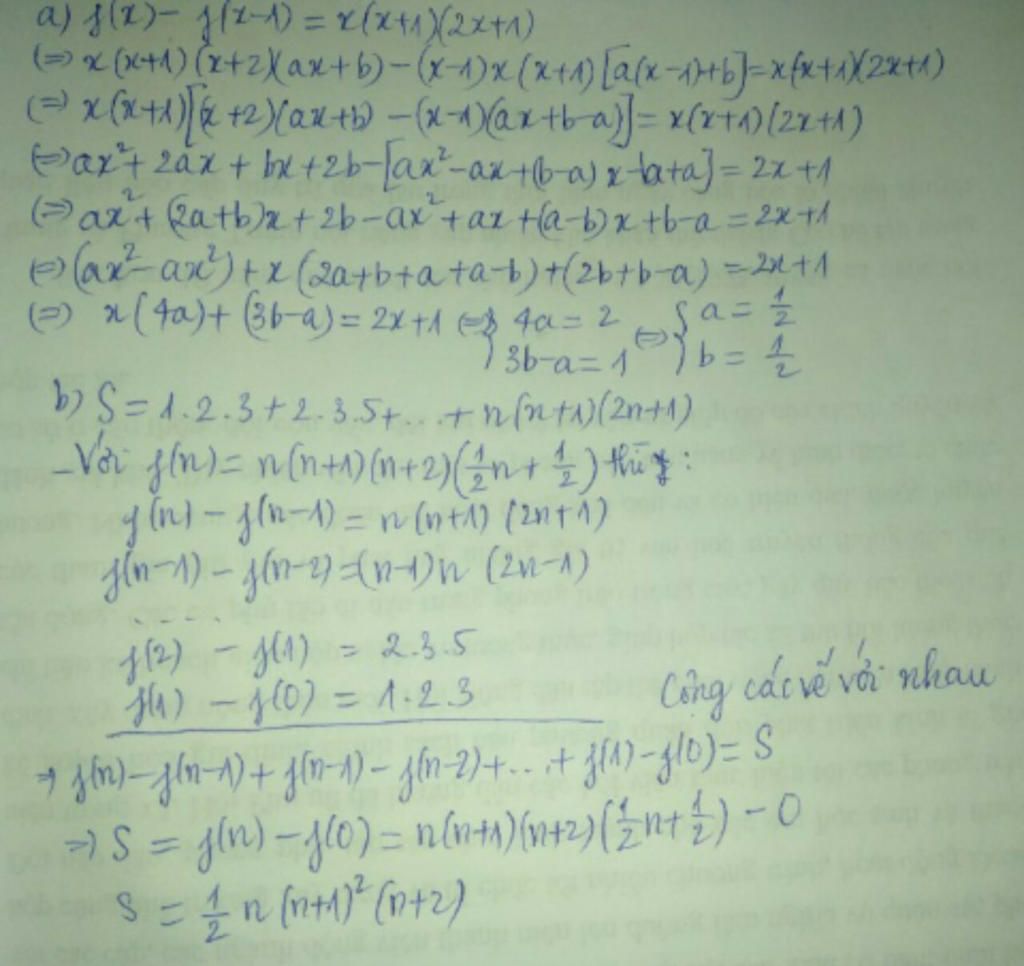 a) f(x) - f(x-1) = x(x+1)(2x+1)
(=) x(x+1)(x+2)(ax+b) - (x-1)x(x+1)[a(x-1)+b] = x(x+1)(2x+1)
(=) x(x+1)[(x+2)(ax+b) - (x-1)(ax+b-a)] = x(x+1)(2x+1)
(=) ax² + 2ax + bx + 2b - [ax² - ax + (b-a)x - b + a] = 2x+1
(=) ax² + (2a+b)x + 2b - ax² + ax + (a-b)x + b - a = 2x+1
(=) (ax² - ax²) + x(2a+b+a+a-b) + (2b+b-a) = 2x+1
(=) x(4a) + (3b-a) = 2x+1 (=) { 4a = 2 (=) { a = 1/2
3b-a = 1 b = 1/2
b) S = 1.2.3 + 2.3.5 + ... + n(n+1)(2n+1)
- Với f(n) = n(n+1)(n+2)(1/2 n + 1/2) thì :
f(n) - f(n-1) = n(n+1)(2n+1)
f(n-1) - f(n-2) = (n-1)n(2n-1)
......
f(2) - f(1) = 2.3.5
f(1) - f(0) = 1.2.3 Cộng các vế với nhau
=> f(n) - f(n-1) + f(n-1) - f(n-2) + ... + f(1) - f(0) = S
=> S = f(n) - f(0) = n(n+1)(n+2)(1/2 n + 1/2) - 0
S = 1/2 n(n+1)²(n+2)